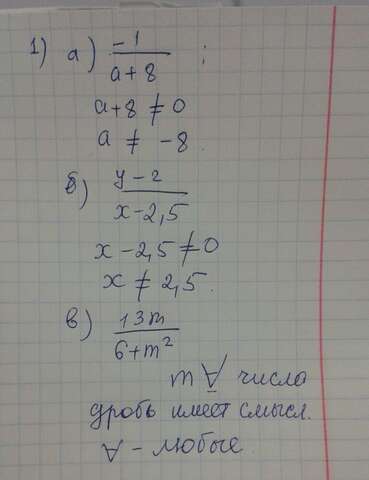 1) а) -1 / a+8 ;
a+8 ≠ 0
a ≠ -8.
б) y-2 / x-2,5
x-2,5 ≠ 0
x ≠ 2,5.
в) 13m / 6+m²
m ∀ числа
дробь имеет смысл.
∀ - любые.